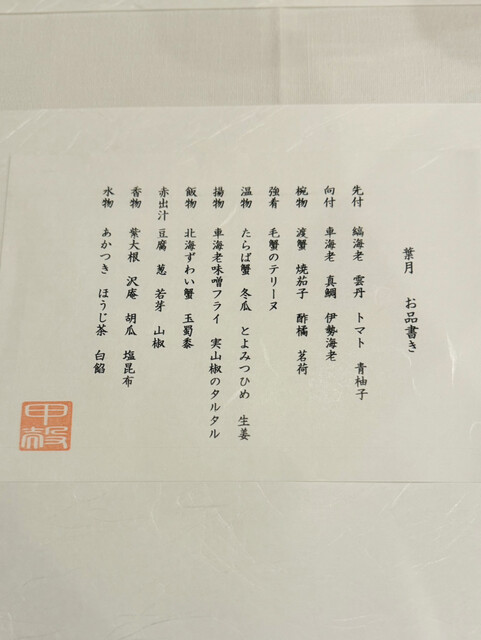 葉月　お品書き
先付　縞海老　雲丹　トマト　青柚子
向付　車海老　真鯛　伊勢海老
椀物　渡蟹　焼茄子　酢橘　茗荷
強肴　毛蟹のテリーヌ
温物　たらば蟹　冬瓜　とよみつひめ　生姜
揚物　車海老味噌フライ　実山椒のタルタル
飯物　北海ずわい蟹　玉蜀黍
赤出汁　豆腐　葱　若芽　山椒
香物　紫大根　沢庵　胡瓜　塩昆布
水物　あかつき　ほうじ茶　白餡
甲殻